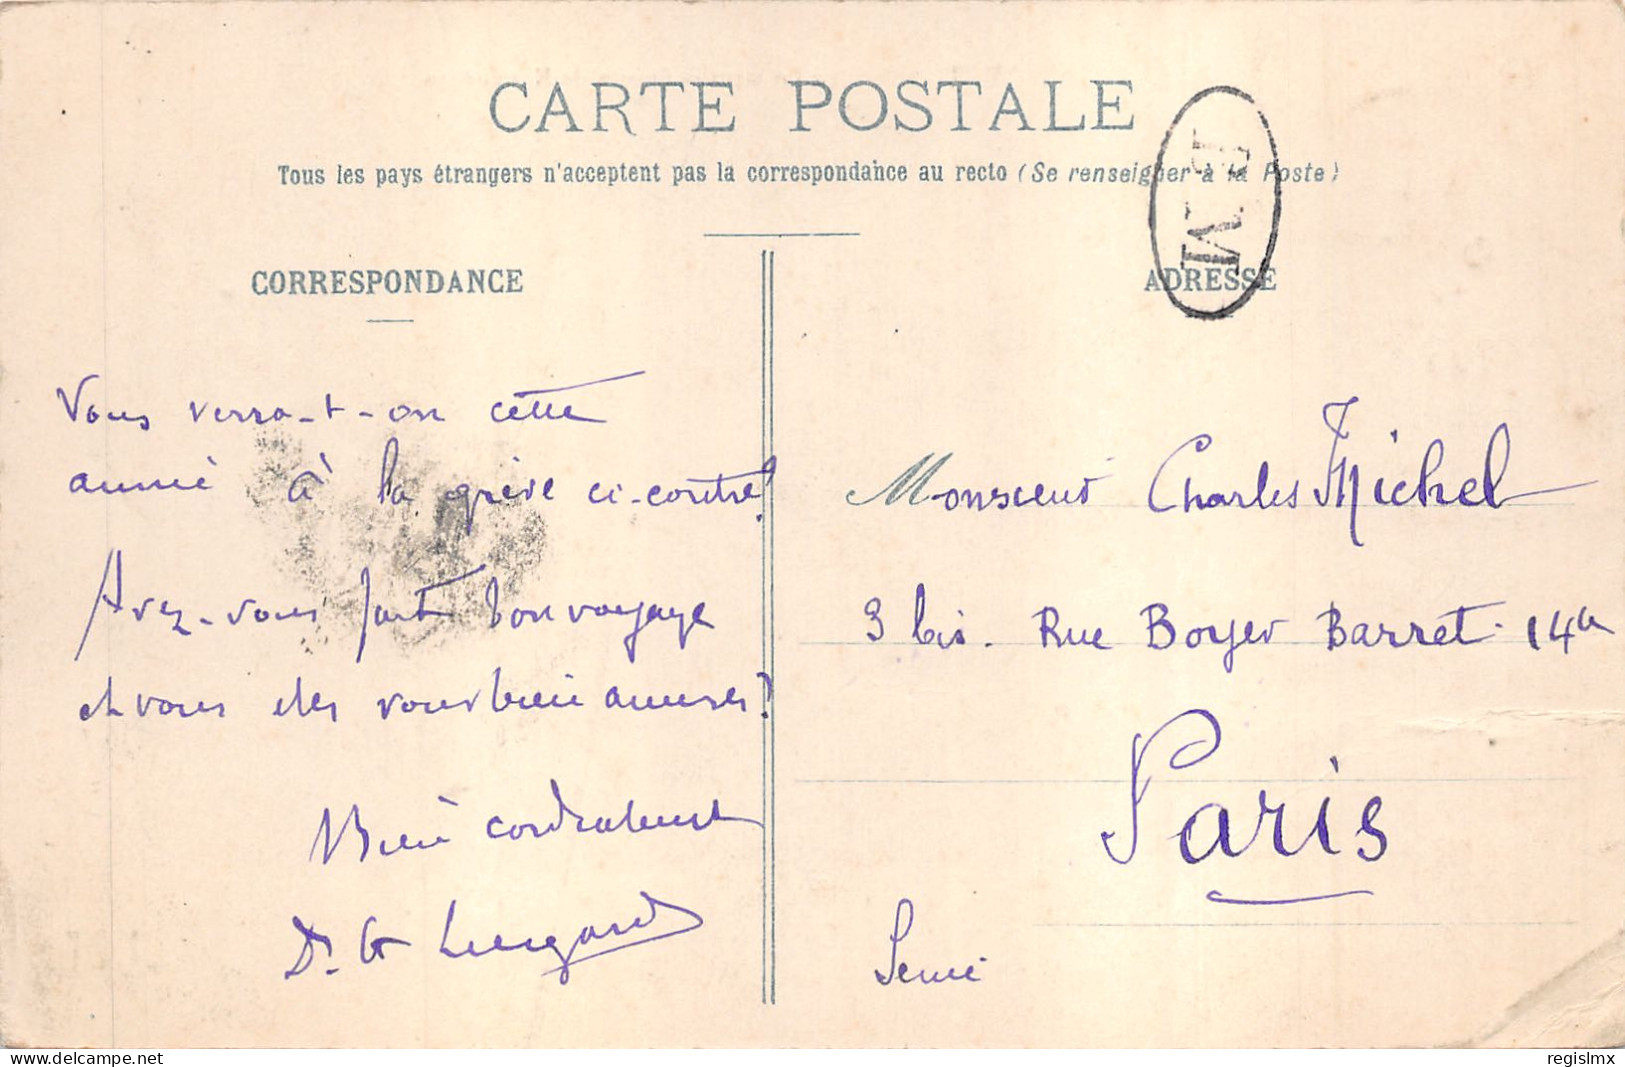 CARTE POSTALE
Tous les pays étrangers n'acceptent pas la correspondance au recto (Se renseigner à la Poste)
CORRESPONDANCE
ADRESSE
Vous verra-t-on cette
année à la grève ci-contre?
Avez-vous fait bon voyage
et vous êtes vous bien amusés?
Bien cordialement
Dr. G
Monsieur Charles Michel
3 bis. Rue Boyer Barret. 14e
Paris
Seine
delcampe.net
regislmx